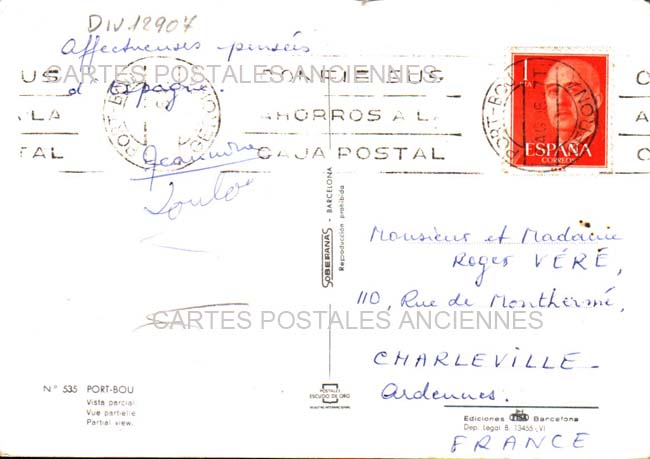 DIV.12907
Affectueuses pensées
d'Espagne.
CARTES POSTALES ANCIENNES
CONFIE SUS
AHORROS A LA
CAJA POSTAL
US
LA
TAL
PORT-BOU
GERONA
1
PTA
ESPAÑA
CORREOS
PORT-BOU
Jeannine
Loulou
SOBERANAS - BARCELONA
Reproducción prohibida
Monsieur et Madame
Roger VÉRÉ,
110, Rue de Monthermé,
CHARLEVILLE-
Ardennes.
FRANCE
CARTES POSTALES ANCIENNES
Nº 535 PORT-BOU
Vista parcial
Vue partielle
Partial view.
POSTALES
ESCUDO DE ORO
Ediciones FISA Barcelona
Dep. Legal B. 13455-VI